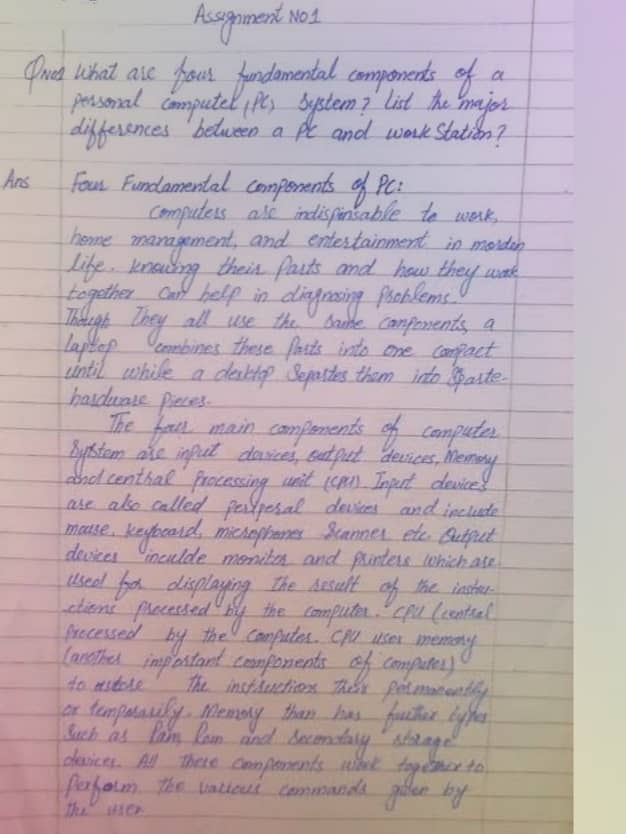 Assignment NO1
Qno1 What are four fundamental components of a
personal computer (PC) System? List the major
differences between a PC and work Station?
Ans Four Fundamental components of PC:
Computers are indispinsable to work,
home management, and entertainment in mordan
life. knowing their Parts and how they work
together can help in diagnosing Problems.
Though They all use the same components, a
laptop combines these Parts into one compact
until while a desktop Sepastes them into Sparte-
hardware Pieces.
The four main components of computer
System are input devices, output devices, Memory
and central Processing unit (CPU). Input devices
are also called peripesal devices and include
mouse, keyboard, microphones Scanner etc. Output
devices inculde monitor and printers which are
used for displaying The result of the instru-
ctions processed by the computer. CPU (central
Processed by the computer. CPU uses memory
(another important components of computer)
to restore The instructions Their permanently
or temporarily. Memory than has further types
Such as Ram, Rom and Secondary storage
devices. All These components work together to
Perform The various commands given by
The user